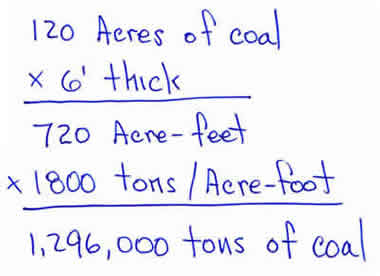 120 Acres of coal
x 6' thick
720 Acre-feet
x 1800 tons / Acre-foot
1,296,000 tons of coal